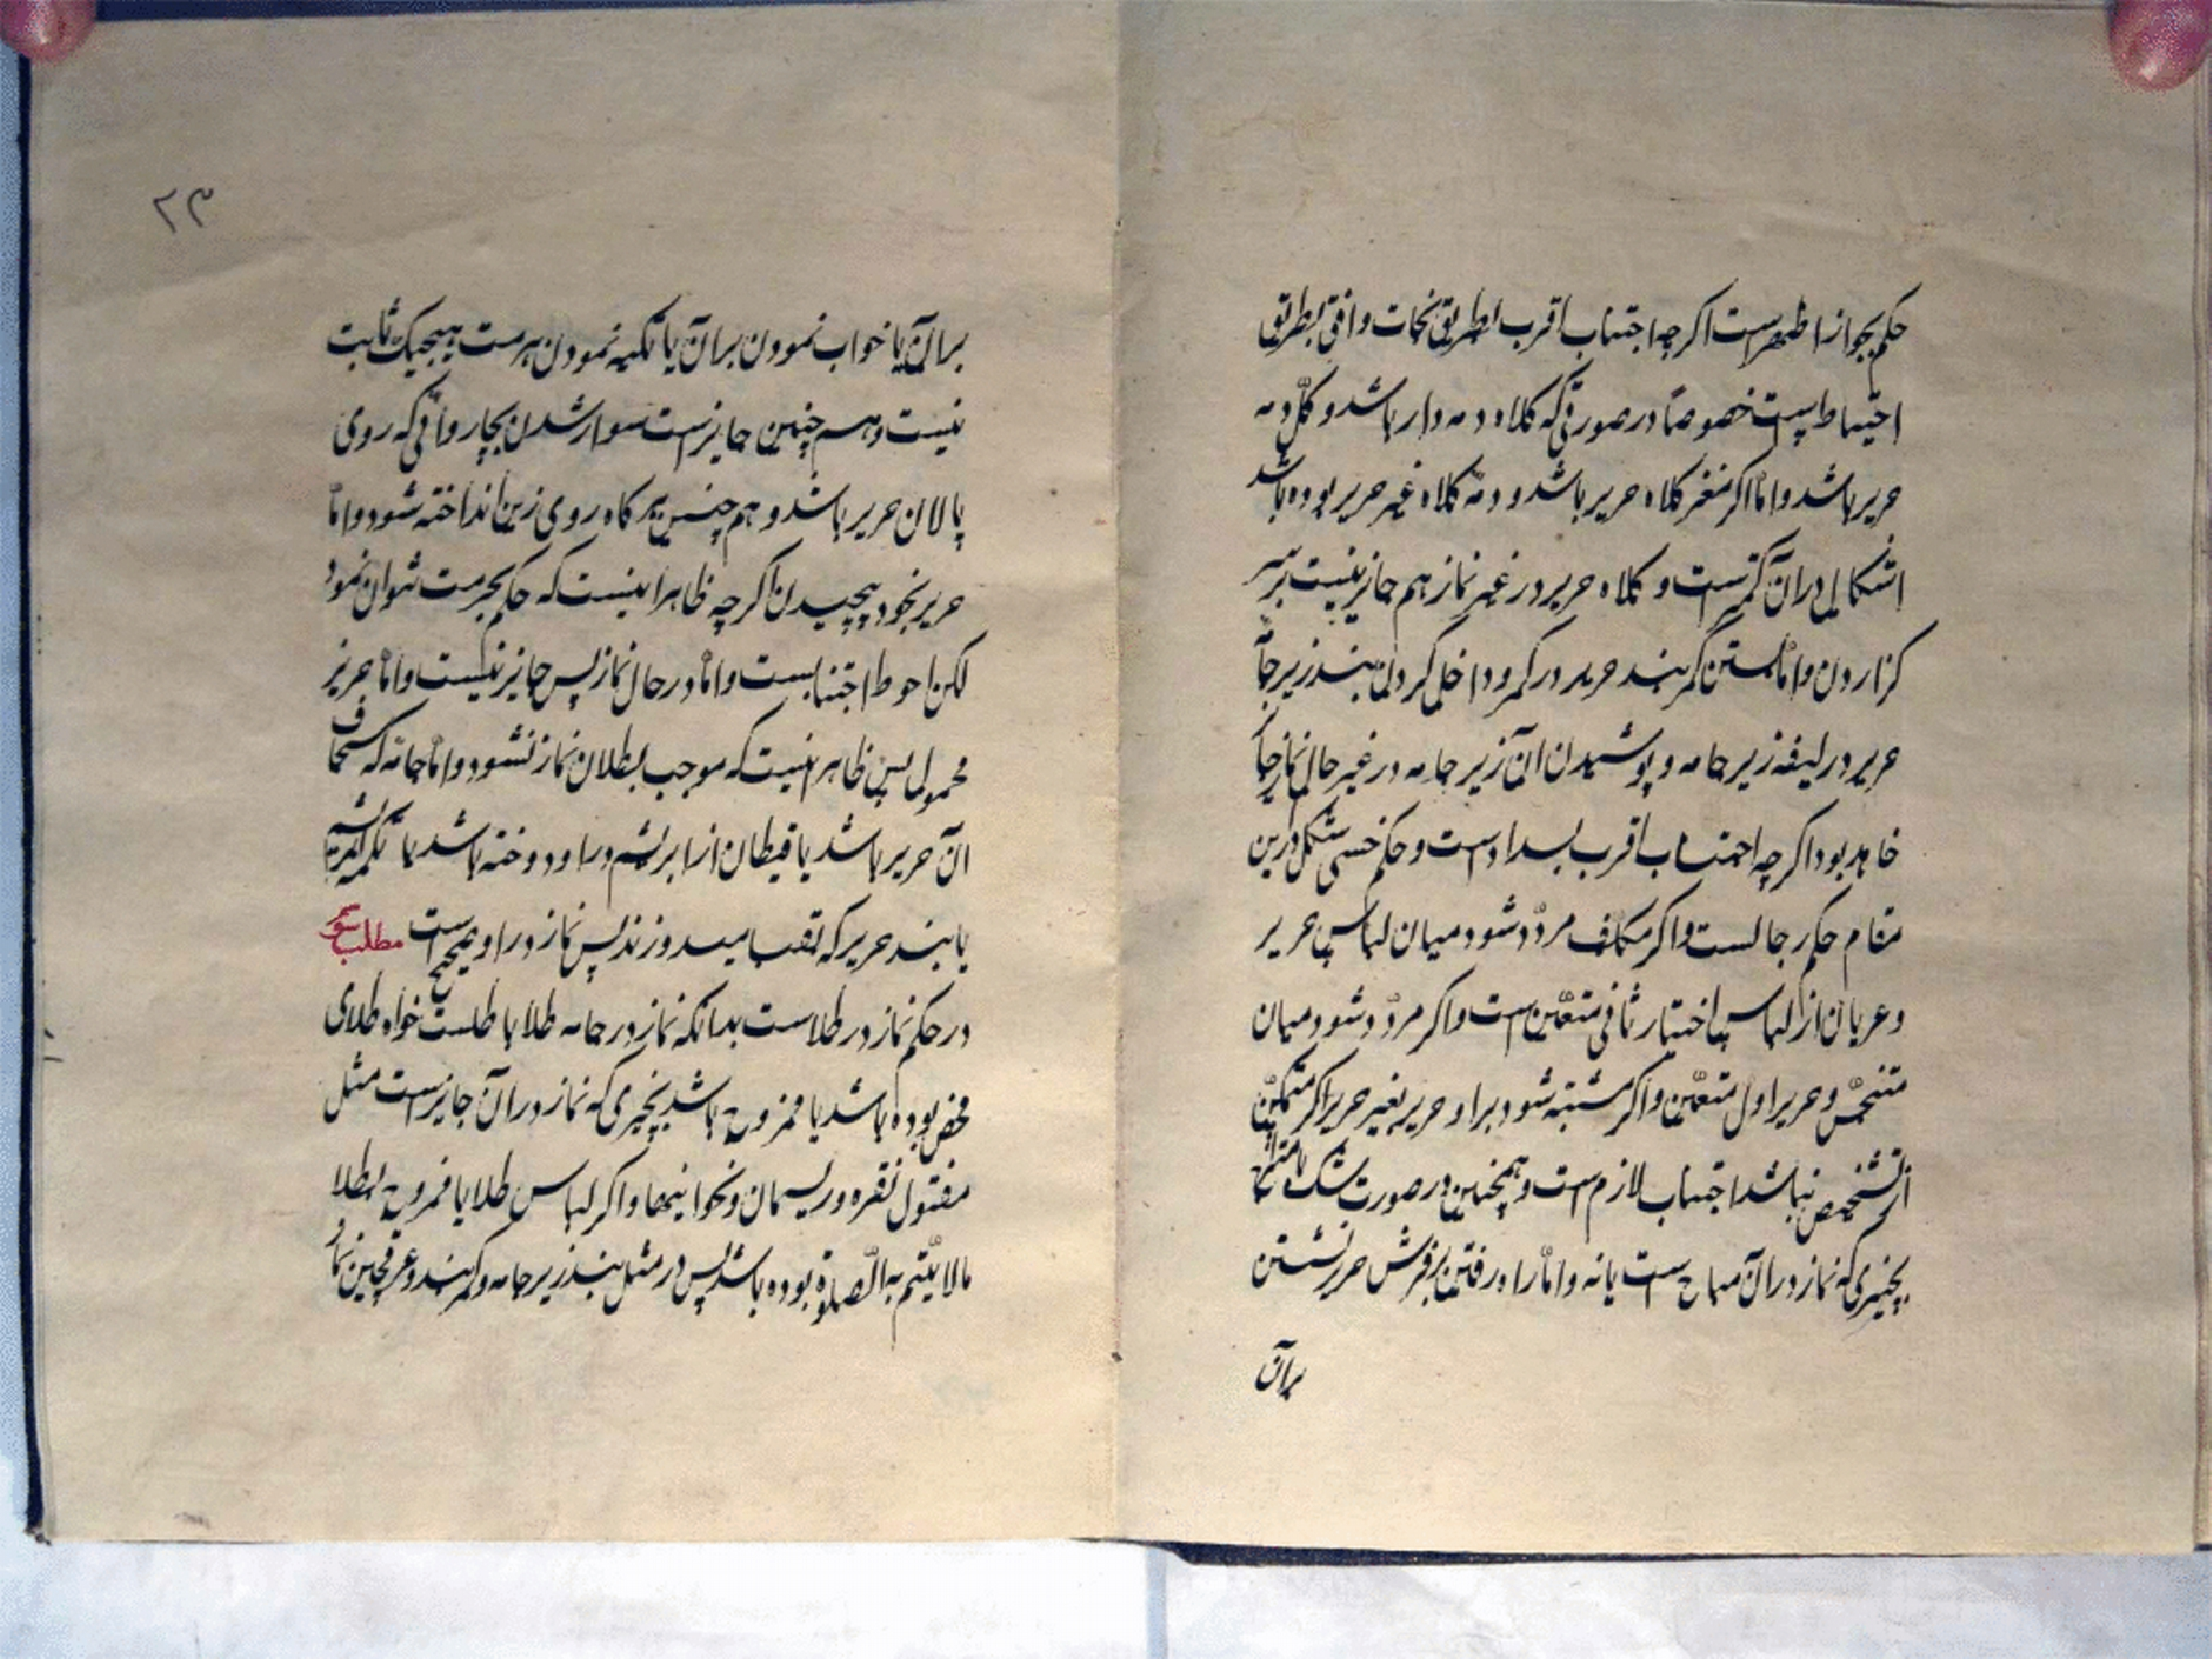 حکم بجواز اظهر است اکرچه اجتناب اقرب بطریق نجات واوفق بطریق
احتیاط است خصوصاً در صورتی که کلاه دمه دار باشد و کل دمه
حریر باشد و امّا اکر مغز کلاه حریر باشد و دمه کلاه غیر حریر بوده باشد
اشکال در آن کمتر است و کلاه حریر در غیر نماز هم جایز نیست بر سر
کزاردن و امّا بستن کمربند حریر در کمر و داخل کردن بند زیر جامه
حریر در لیفه زیر جامه و پوشیدن آن زیر جامه در غیر حال نماز جایز
خواهد بود اکرچه اجتناب اقرب بسداد است و حکم خنثی مشکل درین
مقام حکم رجالست و اکر مکلف مردّد شود میان لباس حریر
و عریان از لباس اختیار ثانی متعیّن است و اکر مردّد شود میان
متنجّس و حریر اول متعیّن و اکر مشتبه شود بر او حریر بغیر حریر اکر متمکّن
از تشخیص نباشد اجتناب لازم است و همچنین در صورت شک
بچیزی که نماز در آن مباح است یا نه و امّا راه رفتن بر فرش حریر نشستن
بر آن
۲۳
بر آن یا خواب نمودن بر آن یا تکیه نمودن حرمت هیچیک ثابت
نیست و هم چنین جایز است سوار شدن بچاروائی که روی
پالان حریر باشد و هم چنین هر کاه روی زین انداخته شود و امّا
حریر بخود پیچیدن اکرچه ظاهرا نیست که حکم بحرمت نتوان نمود
لکن احوط اجتنابست و امّا در حال نماز پس جایز نیست و امّا حریر
محمول پس ظاهر اینست که موجب بطلان نماز نشود و امّا جامه که سجاف
آن حریر باشد یا قیطان از ابریشم در او دوخته باشد یا تکمه ابریشم
یا بند حریر که بقبا میدوزند پس نماز در او صحیح است مطلب سوّم
در حکم نماز در طلاست بدانکه نماز در جامه طلا باطلست خواه طلای
محض بوده باشد یا ممزوج باشد بچیزی که نماز در آن جایز است مثل
مفتول نقره و ریسمان و نحو اینها و اکر لباس طلا یا ممزوج بطلا
مالا یتّتم به الصّلوة بوده باشد پس در مثل بند زیر جامه و کمربند و عرقچین نماز